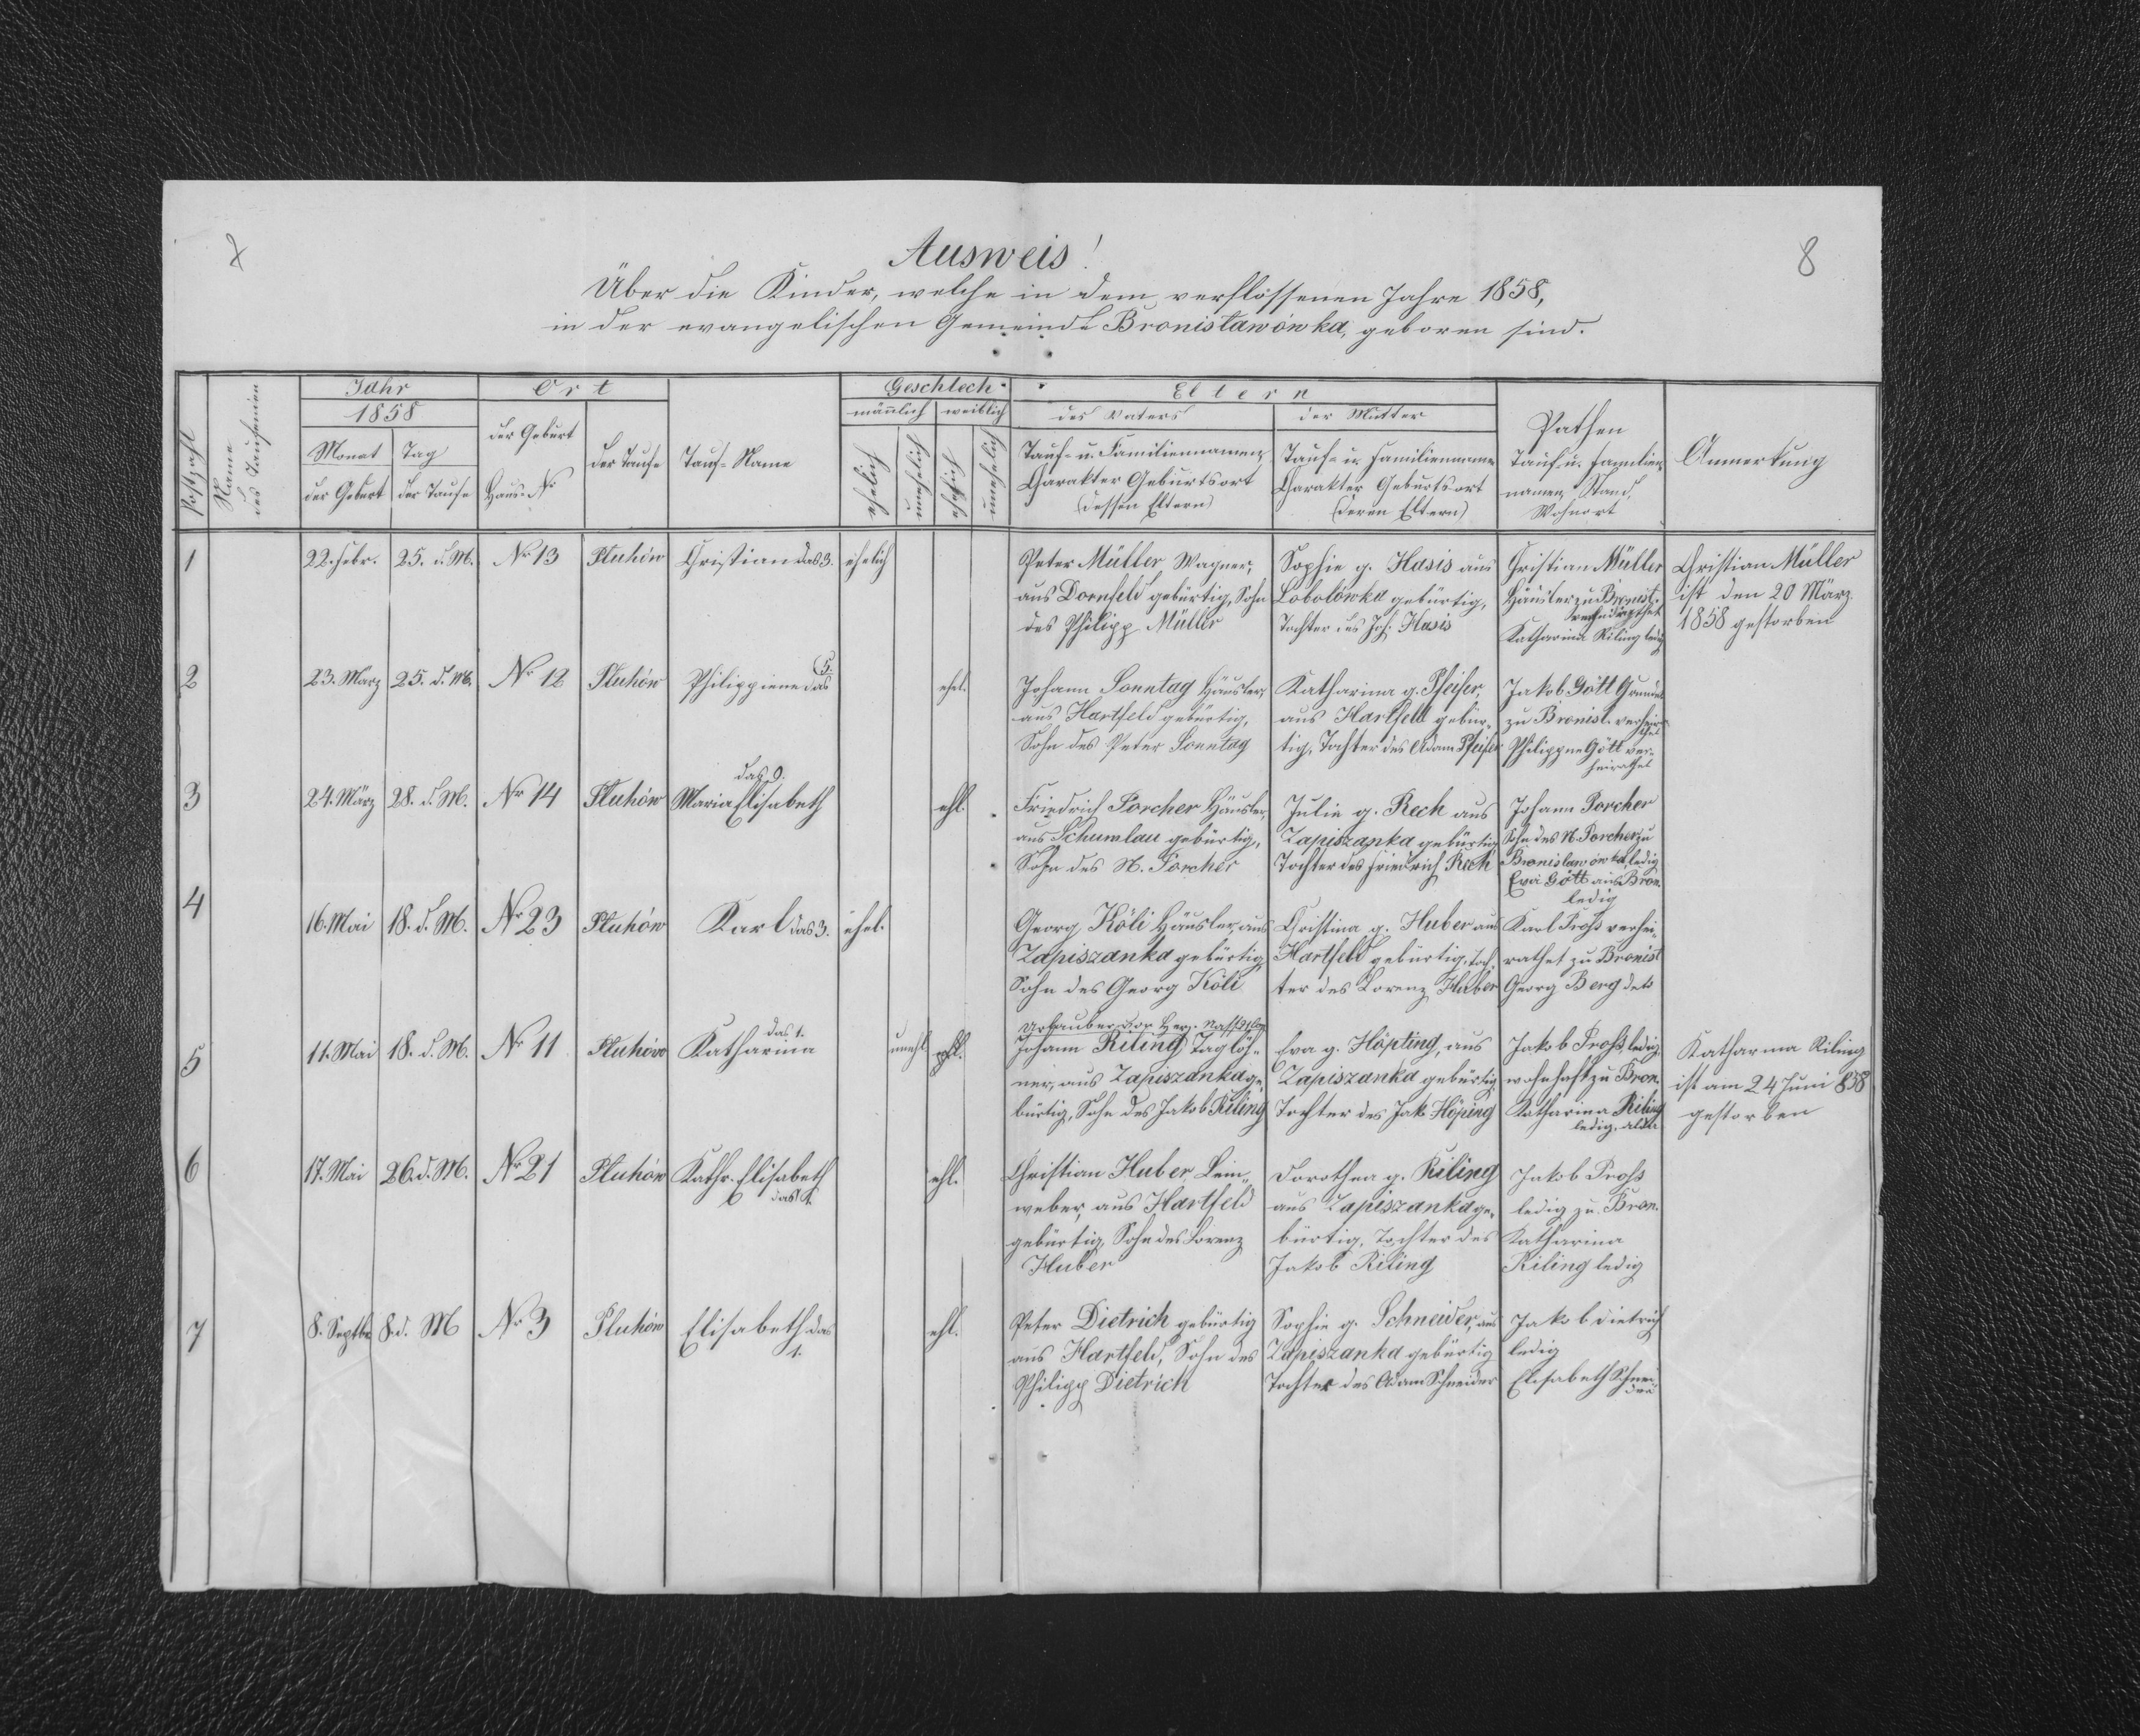 8
8
Ausweis!
Über die Kinder, welche in dem verflossenen Jahre 1858,
in der evangelischen Gemeinde Bronisławówka, geboren sind.
Postzahl
Name
des Taufenden
Jahr
1858
Monat
der Geburt
Tag
der Taufe
Ort
der Geburt
Haus-Nr
der Taufe
Tauf-Name
Geschlech
männlich
weiblich
ehelich
unehelich
ehelich
unehelich
Eltern
des Vaters
der Mutter
Tauf- u. Familiennamen,
Charakter Geburtsort
(dessen Eltern)
Tauf- u. Familienname
Charakter Geburtsort
(deren Eltern)
Pathen
Tauf u. Familien
namen, Stand,
Wohnort
Anmerkung
1
22. Febr.
25. d. M.
Nr 13
Pluhów
Christian das 3.
ehelich
Peter Müller Wagner,
aus Dornfeld gebürtig, Sohn
des Philipp Müller
Sophie g. Hasis aus
gebürtig,
Tochter des Joh. Hasis
Christian Müller
Häusler zu Bronisł.
Katharina Riling ledig
Christian Müller
ist den 20 März
1858 gestorben
2
23. März
25. d. M.
Nr 12
Pluhów
Philippiene das 5.
ehel.
Johann Sonntag Häusler,
aus Hartfeld gebürtig,
Sohn des Peter Sonntag
Katharina g. Pfeifer,
aus Hartfeld gebür-
tig, Tochter des Adam Pfeifer
Jakob Gött
zu Bronisl. verheir
athet
Philippne Gött ver-
heirathet
3
24. März
28. d. M.
Nr 14
Pluhów
das 9.
Maria Elisabeth
ehl.
Friedrich Porcher Häusler,
aus Schumlau gebürtig,
Sohn des N. Porcher
Julie g. Rech aus
Zapiszanka gebürtig
Tochter des Friedrich Rech
Johann Porcher
Sohn des N. Porcher zu
Bronisławówka, ledig
Eva Gött aus Bron.
ledig
4
16. Mai
18. d. M.
Nr 23
Pluhów
Karl das 3.
ehel.
Georg Köli Häusler, aus
Zapiszanka gebürtig,
Sohn des Georg Köli
Christina g. Huber aus
Hartfeld gebürtig, Toch-
ter des Lorenz Huber
Karl Proß verhei-
rathet zu Bronisł
Georg Berg deto
5
11. Mai
18. d. M.
Nr 11
Pluhów
das 1.
Katharina
unehl.
Urlauber
Johann Riling Taglöh-
ner, aus Zapiszanka ge-
bürtig, Sohn des Jakob Riling
Eva g. Höpting, aus
Zapiszanka gebürtig
Tochter des Jak. Höping
Jakob Proß, ledig,
wohnhaft zu Bron.
Katharina Riling
ledig, alda
Katharina Riling
ist am 24 Juni 858
gestorben
6
17. Mai
26. d. M.
Nr 21
Pluhów
Kathr. Elisabeth
ehl.
Christian Huber, Lein-
weber, aus Hartfeld
gebürtig, Sohn des Lorenz
Huber
Dorothea g. Riling
aus Zapiszanka ge-
bürtig, Tochter des
Jakob Riling
Jakob Proß
ledig zu Bron.
Katharina
Riling ledig
7
8. Septbr
8. d. M
Nr 3
Pluhów
Elisabeth das
1.
ehl.
Peter Dietrich gebürtig
aus Hartfeld, Sohn des
Philipp Dietrich
Sophie g. Schneider, aus
Zapiszanka gebürtig
Tochter des Adam Schneider
Jakob Dietrich
ledig
Elisabeth Schnei-
der